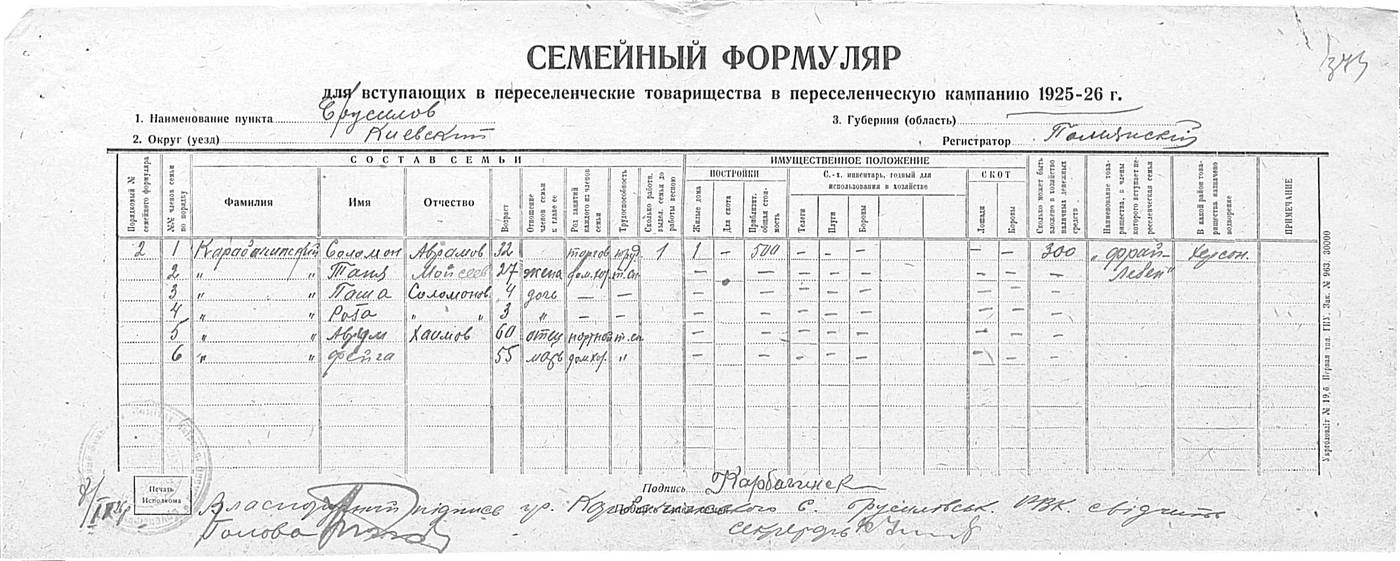 СЕМЕЙНЫЙ ФОРМУЛЯР
для вступающих в переселенческие товарищества в переселенческую кампанию 1925-26 г.
1. Наименование пункта Брусилов
3. Губерния (область)
2. Округ (уезд) Киевский
Регистратор
СОСТАВ СЕМЬИ
ИМУЩЕСТВЕННОЕ ПОЛОЖЕНИЕ
ПОСТРОЙКИ С.-х. инвентарь, годный для использования в хозяйстве СКОТ
Порядковый № семейного формуляра №№ членов семьи по порядку Фамилия Имя Отчество Возраст Отношение членов семьи к главе ее Род занятий каждого из членов семьи Трудоспособность Сколько работн. выдел. семья до работы весною Жилые дома Для скота Приблизит. общая стоимость Телеги Плуги Бороны Лошади Коровы Сколько может быть вложено в хозяйство наличных денежных средств Наименование товарищества, в члены которого вступает переселенческая семья В какой район товарищества назначено водворение ПРИМЕЧАНИЕ
2 1 Карабачинский Соломон Аврамов 32 торгов. труд. 1 1 — 500 — — — — — 300 „Фрай- Херсон.
2 " " Таня Мойсеев 27 жена дом.хоз. т.сп. — — — — — — — — — Лебен"
3 " " Паша Соломонов. 4 дочь — — — — — — — — — — —
4 " " Роза " " 3 " — — — — — — — — — — —
5 " " Аврум Хаимов 60 отец портной т.сп. — — — — — — — — —
6 " " Фейга 55 мать дом.хоз. " — — — — — — — — —
Укрголовліт № 19,6 Первая тип. ГПУ. Зак. № 963. 30000
Печать Исполкома
Подпись Карбачинск
Власноручний підпис гр. Карабачинського С. Брусилівськ. РВК. свідчить
Голова Секретарь